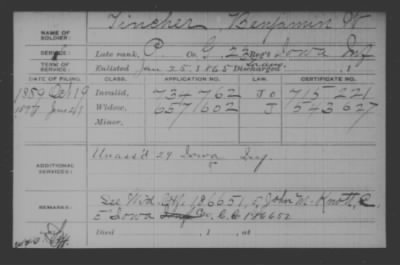 NAME OF SOLDIER: Tincher Benjamin W
SERVICE: Late rank P. Co. G, 23 Reg't Iowa Inf
TERM OF SERVICE: Enlisted Jan 25, 1865 Discharged , 1
DATE OF FILING. CLASS. APPLICATION NO. LAW. CERTIFICATE NO.
1889 Oct 19 Invalid, 734 762 J O 715 221
1897 June Widow, 657 602 J 543 627
Minor,
ADDITIONAL SERVICES: Unass'd 29 Iowa Inf
REMARKS: See Wid. Ctf. 186651, of John M. Knott, C.
5 Iowa Cv. C.C 186652
Died , 1 , at